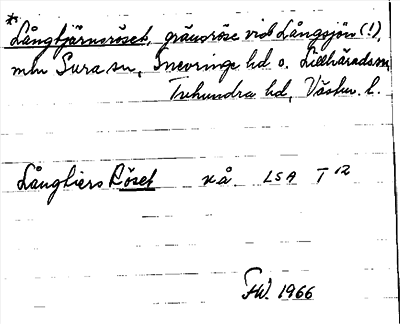 *
Långtjärnsröset, gränsröse vid Långsjön (!),
mln Sura sn, Snevringe hd o. Lillhäradssn
Tuhundra hd, Västm. l.
Långtiers Röset x å LSA T 12
FW. 1966